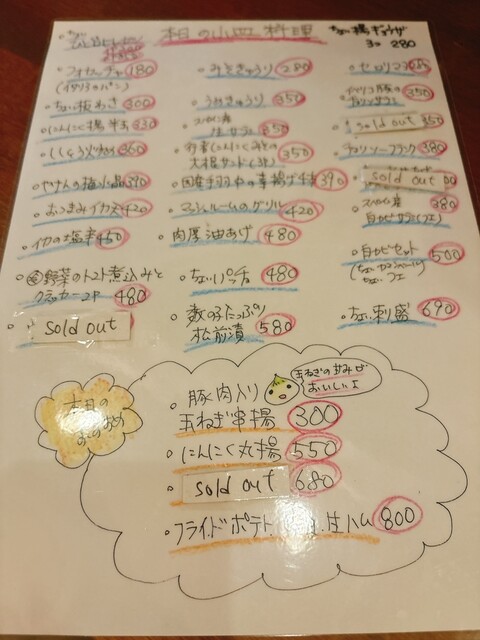 本日の小皿料理
ちょい揚ギョウザ
3コ 280
フォカッチャ 180
(イタリアのパン)
ちょい板わさ 300
にんにく揚 330
360
やげんの梅水晶 390
おつまみイカ天 420
イカの塩辛 450
野菜のトマト煮込みと
クラッカー 480
sold out
みそきゅうり 280
うめきゅうり 350
生サラミ 350
行者にんにくみその
大根サンド 350
国産手羽中の素揚げ 390
マッシュルームのグリル 420
肉厚油あげ 480
ちょいパッチョ 480
数の子たっぷり
松前漬 580
セロリ
イベリコ豚の 350
sold out 350
チョリソーフランク 380
sold out
スペイン産 380
白カビサラミ(フエ)
白カビセット 500
ちょい刺盛 690
本日の
おすすめ
豚肉入り
玉ねぎ串揚 300
玉ねぎの甘みが
おいしいよ
にんにく丸揚 550
sold out 680
フライドポテト 生ハム 800